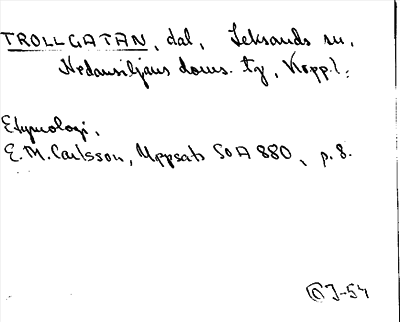 TROLLGATAN, dal, Leksands sn,
Nedansiljans doms. tg, Kopp.l.
Etymologi,
E.M. Carlsson, Uppsats SOA 880, p. 8.
J-54